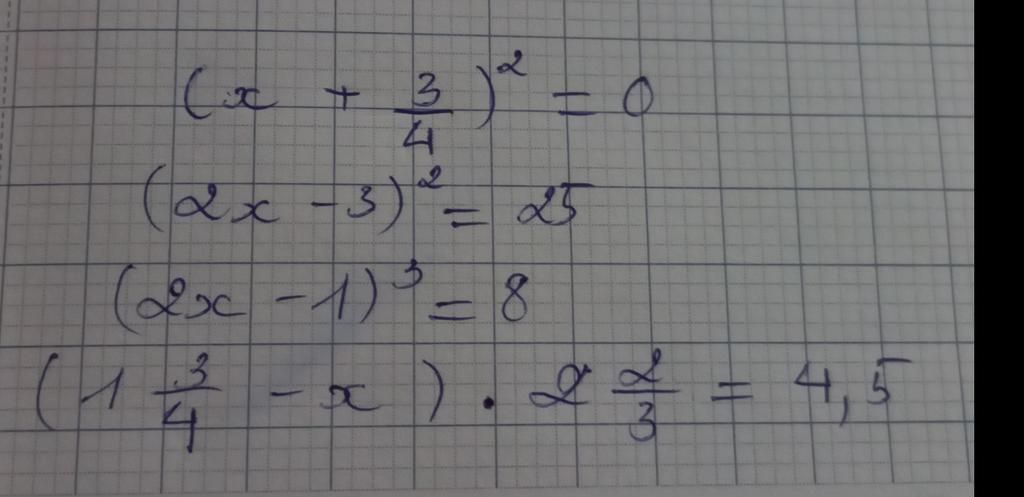 (x + 3/4)² = 0
(2x - 3)² = 25
(2x - 1)³ = 8
(1 3/4 - x) . 2 2/3 = 4,5